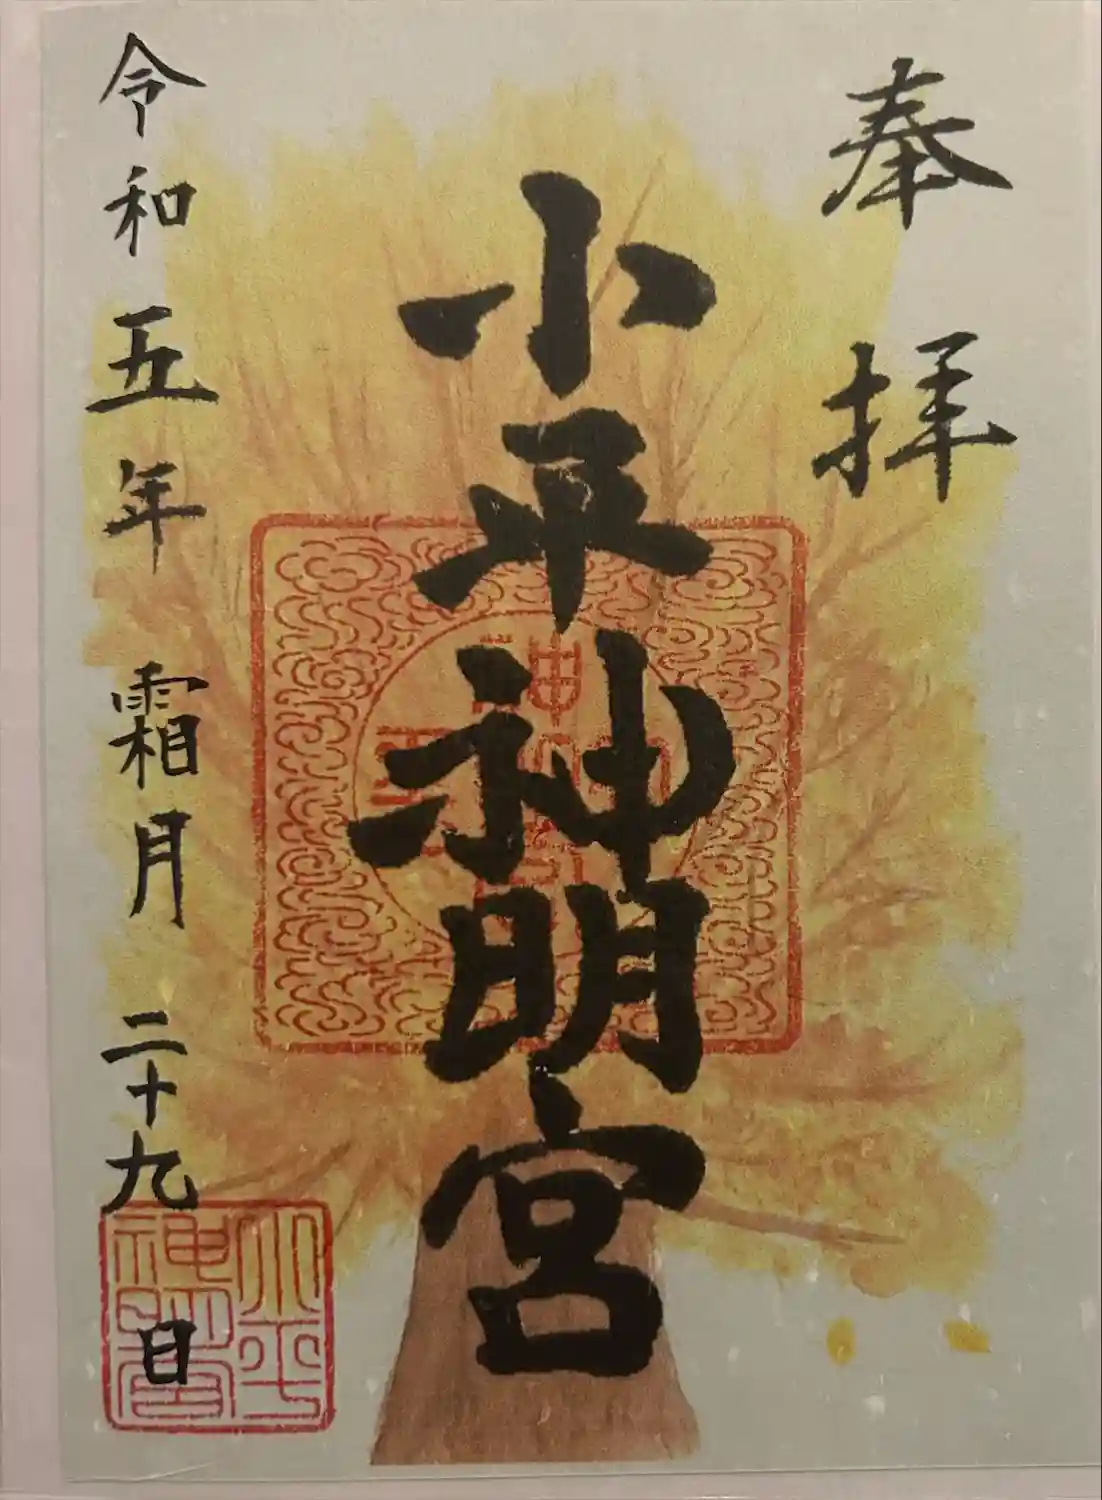 奉拝
小平神明宮
令和五年 霜月 二十九日
小平
神明宮